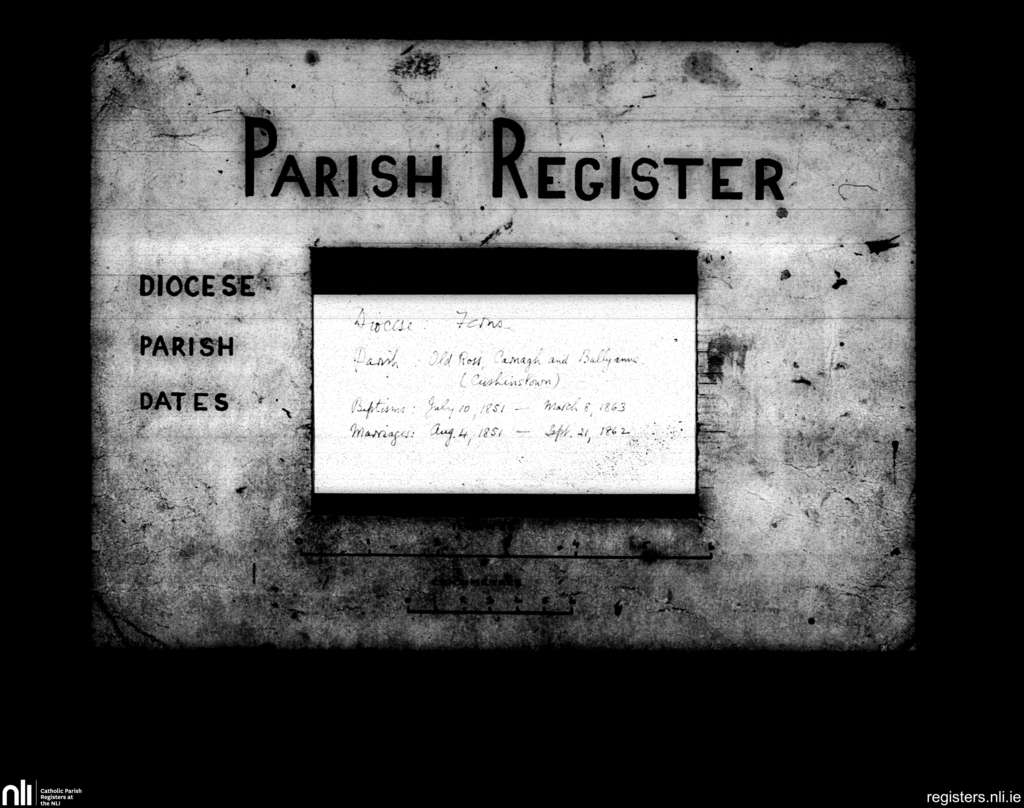 PARISH REGISTER
DIOCESE
PARISH
DATES
Diocese : Ferns
Parish : Old Ross, Carnagh and Ballyanne.
(Cushinstown)
Baptisms : July 10, 1851 — March 8, 1863
Marriages : Aug. 4, 1851 — Sept. 21, 1862
nli
Catholic Parish
Registers at
the NLI
registers.nli.ie